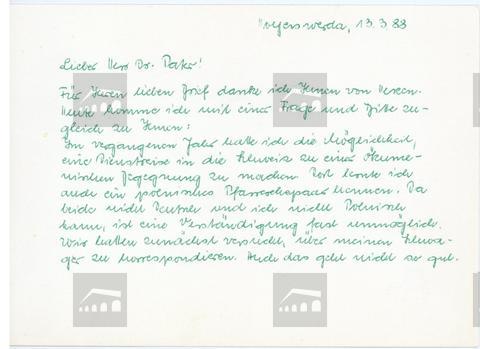 Hoyerswerda, 13.3.88
Lieber Herr Dr. Pater!
Für Ihren lieben Brief danke ich Ihnen von Herzen.
Heute komme ich mit einer Frage und Bitte zu-
gleich zu Ihnen:
Im vergangenen Jahr hatte ich die Möglichkeit,
eine Dienstreise in die Schweiz zu einer ökume-
nischen Begegnung zu machen. Dort lernte ich
auch ein polnisches Pfarrerehepaar kennen. Da
beide nicht Deutsch und ich nicht Polnisch
kann, ist eine Verständigung fast unmöglich.
Wir hatten zunächst versucht, über meinen Schwa-
ger zu korrespondieren. Auch das geht nicht so gut.